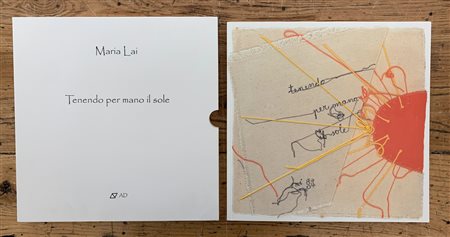 Maria Lai
Tenendo per mano il sole
AD
tenendo
per mano
il sole